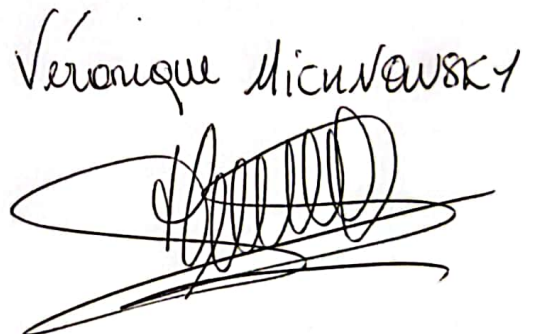 Véronique MICHNOWSKY